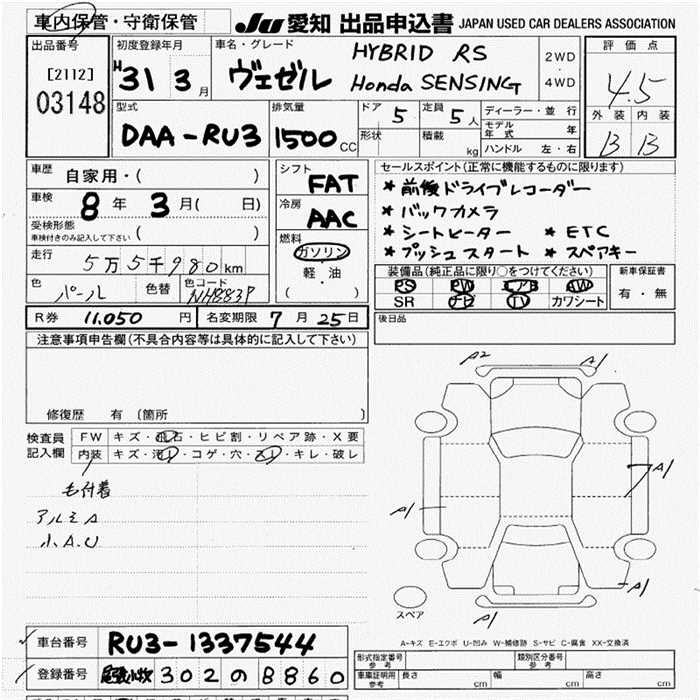 車内保管・守衛保管
JU 愛知 出品申込書 JAPAN USED CAR DEALERS ASSOCIATION
出品番号
[2112]
03148
初度登録年月
H 31 3 月
車名・グレード
ヴェゼル
HYBRID RS
Honda SENSING
2WD
4WD
評価点
4.5
外装 内装
B B
型式
DAA-RU3
排気量
1500 CC
ドア 5
形状
定員 5 人
積載 kg
ディーラー・並行
モデル年式 年
ハンドル 左・右
車歴 自家用・( )
車検 8 年 3 月( 日)
受検形態
車検付きのみ記入して下さい ( )
走行 5万5千980 km
色 パール 色替 色コード NH883P
シフト
FAT
冷房
AAC
燃料
ガソリン
軽・油
( )
セールスポイント(正常に機能するものに限ります)
* 前後ドライブレコーダー
* バックカメラ
* シートヒーター * ETC
* プッシュスタート * スペアキー
装備品(純正品に限り○をつけてください)
PS PW エアB AW
SR ナビ TV カワシート
新車保証書
有・無
R券 11.050 円 名変期限 7 月 25 日
後日品
注意事項申告欄(不具合内容等は具体的に記入して下さい)
修復歴 有 〔箇所 〕
検査員記入欄
FW キズ・飛石・ヒビ割・リペア跡・X要
内装 キズ・汚レ・コゲ・穴・スレ・キレ・破レ
毛付着
アルミA
小A.U
A2 A1
A1
A1
A1
A1
スペア
A-キズ E-エクボ U-凹み W-補修跡 S-サビ C-腐食 XX-交換済
車台番号 RU3-1337544
登録番号 302 の 8860
形式指定番号 参考
類別区分番号 参考
車庫証明用 参考 長さ cm 幅 cm 高さ cm